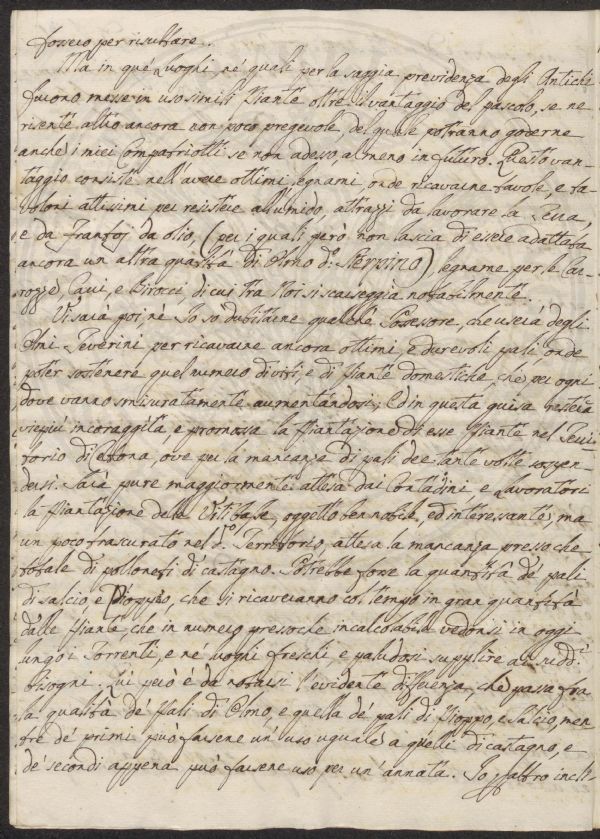 fossero per risultare.
Ma in que' luoghi, né quali per la saggia previdenza degli Antichi
furono messe in uso simili Piante oltre il vantaggio del pascolo, se ne
risente altro ancora non poco pregevole, del quale potranno goderne
anche i miei Compatriotti se non adesso, almeno in futuro. Questo van-
taggio consiste nell'avere ottimi legnami, onde ricavarne tavole, e ta-
voloni attissimi per resistere all'umido, attrazzi da lavorare la Terra
e da Frantoj da olio, (per i quali però non lascia di essere adattata
ancora un'altra qualità di Olmo dº Sterpino) legname per le Car-
rozze Carri, e Birocci di cui tra Noi si scarseggia notabilmente.
Vi sarà poi nè Io so dubitarne qualche Possessore, che userà degli
Olmi Severini per ricavarne ancora ottimi, e durevoli pali onde
poter sostenere quel numero di viti, e di Piante domestiche, che per ogni
dove vanno smisuratamente aumentandosi; Ed in questa guisa resterà
viepiù incoraggita e promossa la Piantazione di esse Piante nel Terri-
torio di, ove per la mancanza di pali dee tante volte sospen-
dersi. Sarà pure maggiormente attesa dai Contadini, e Lavoratori
la Piantazione della Vite base, oggetto ben nobile, ed interessante, ma
un poco trascurato nel dº Territorio, attesa la mancanza pressoche
totale di polloneti di castagno. Potrebbe forse la quantità de' pali
di salcio e Pioppo, che si ricaveranno col tempo in gran quantità
dalle Piante, che in numero pressoche incalcolabile vedonsi in oggi
lungo i Torrenti, e ne' luoghi freschi, e paludosi supplire ai sudd.i
bisogni. Qui però è da notarsi l'evidente differenza, che passa fra
la qualità de' Pali di Olmo, e quella de' pali di Pioppo, e Salcio, men-
tre de' primi può farsene un uso uguale a quelli di castagno, e
de' secondi appena può farsene uso per un'annata. Io pertaltro incli-